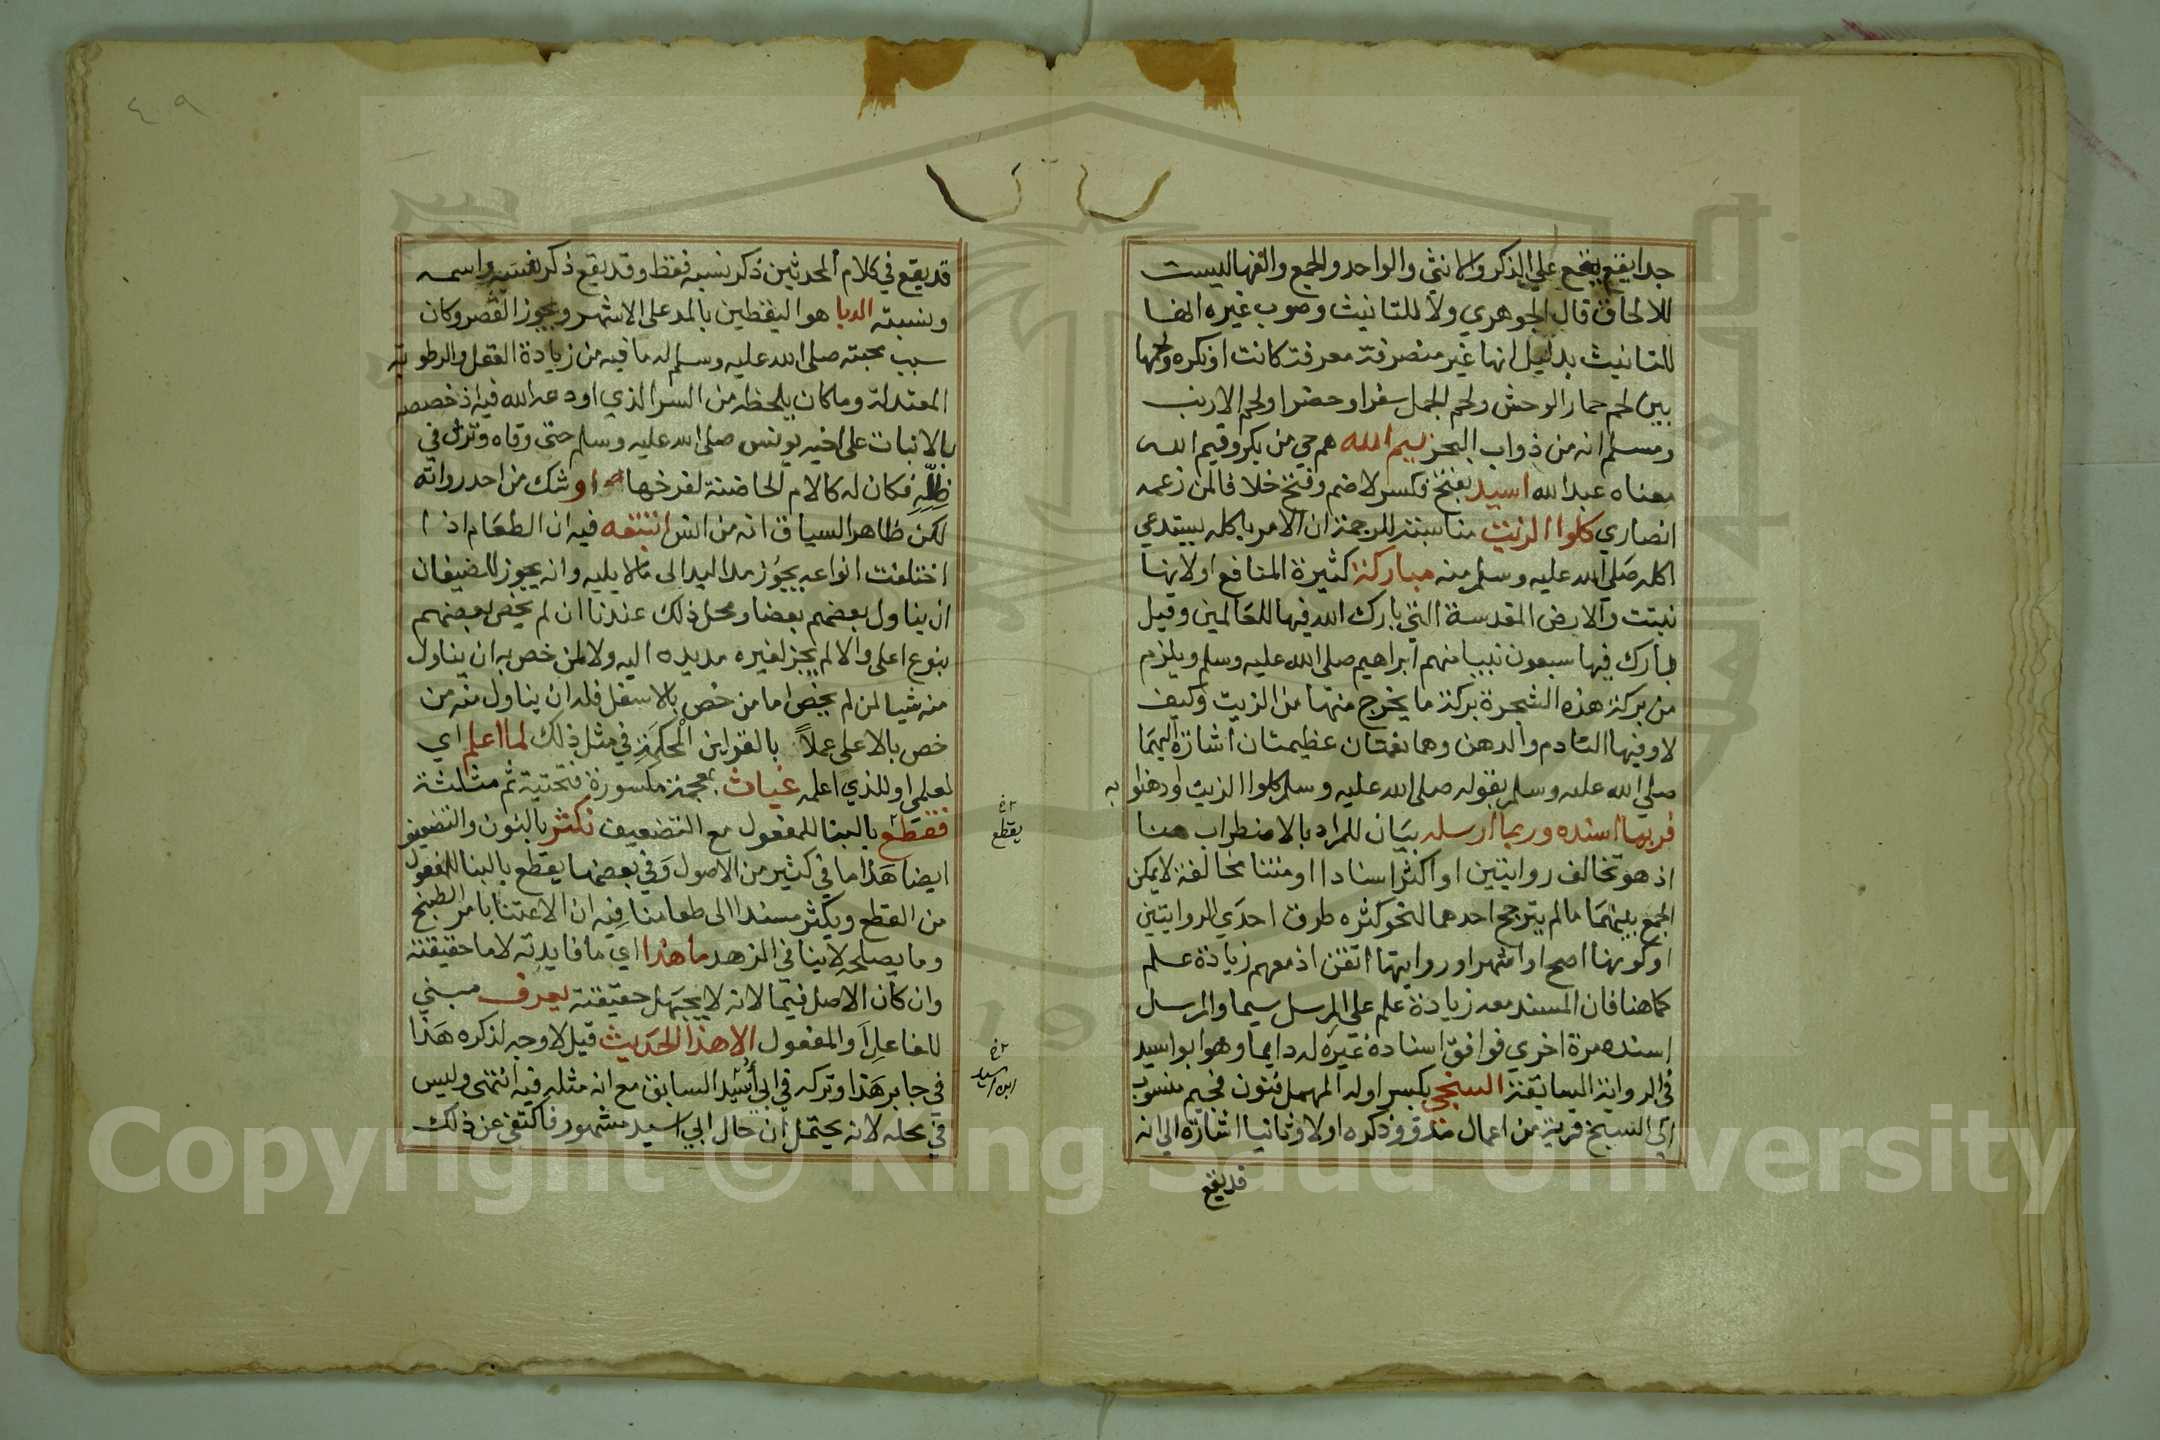 جدا يقع علي الذكر والانثي والواحد والجمع والفها ليست
للالحاق قال الجوهري ولا للتانيث وصوب غيره انها
للتانيث بدليل انها غير منصرفة معرفة كانت او نكره ولحمها
بين لحم حمار الوحش ولحم الجمل سفرا وحضرا ولحم الارنب
ومسلم انه من ذواب البحر تيم الله هم حي من بكر وقيم الله
معناه عبد الله اسيد بفتح فكسر لا ضم وفتح خلافا لمن زعمه
انصاري كلوا الزيت مناسبته للترجمة ان الامر باكله يستدعي
اكله صلي الله عليه وسلم منه مباركة كثيرة المنافع او لانها
نبتت والارض المقدسة التي بارك الله فيها للعالمين وقيل
بارك فيها سبعون نبيا منهم ابراهيم صلي الله عليه وسلم ويلزم
من بركة هذه الشجرة بركة ما يخرج منها من الزيت وكيف
لا وفيها التادم والدهن وهما نعمتان عظيمتان اشارة اليهما
صلي الله عليه وسلم بقوله صلي الله عليه وسلم كلوا الزيت وادهنوا به
فربما اسنده وربما ارسله بيان للمراد بالاضطراب هنا
اذ هو تخالف روايتين او اكثر اسنادا او متنا مخالفة لا يمكن
الجمع بينهما ما لم يترجح احدهما لنحو كثره طرق احدي الروايتين
او كونها اصح او اشهر او رواتها اتقن اذ معهم زيادة علم
كما هنا فان المسند معه زيادة علم علي المرسل سيما والمرسل
اسنده مرة اخري فوافق اسناده غيره له دايما وهو ابو اسيد
في الرواية السابقة السنجي بكسر اوله المهمل فنون فجيم منسوب
الي السنج قرية من اعمال مرو وذكره اولا وثانيا اشارة الي انه
قد يقع
٤٩
قد يقع في كلام المحدثين ذكر نسبه فقط وقد يقع ذكر نفسه واسمه
ونسبته الدبا هو اليقطين بالمد علي الاشهر ويجوز القصر وكان
سبب محبته صلي الله عليه وسلم له ما فيه من زيادة العقل والرطوبة
المعتدلة وما كان يلحظه من السر الذي اودعه الله فيه اذ خصصه
بالانبات علي اخيه يونس صلي الله عليه وسلم حتي وقاه وتربي في
ظله فكان له كالام الحاضنة لفرخها او شك من احد رواته
لكن ظاهر السياق انه من انس اتتبعه فيه ان الطعام اذا
اختلفت انواعه يجوز مد اليد الي ما لا يليه وانه يجوز للضيفان
ان يناول بعضهم بعضا ومحل ذلك عندنا ان لم يخص بعضهم
بنوع اعلي والا لم يجز لغيره مد يده اليه ولا لمن خص به ان يناول
منه شيا لمن لم يخص اما من خص بالاسفل فله ان يناول منه من
خص بالاعلي عملا بالقراين المحكمة في مثل ذلك لما اعلم اي
لعلمي او للذي اعلمه غياث بمعجمة مكسورة فتحتية ثم مثلثة
فقطع بالبنا للمفعول مع التضعيف نكثر بالنون والتضعيف
ايضا هذا ما في كثير من الاصول وفي بعضها يقطع بالبنا للمفعول
من القطع ويكثر مسندا الي طعامنا فيه ان الاعتنا بامر الطبخ
وما يصلحه لا ينافي الزهد ما هذا اي ما فايدته لا ما حقيقته
وان كان الاصل فيما لانه لا يجهل حقيقته يعرف مبني
للفاعل والمفعول الا هذا الحديث قيل لا وجه لذكره هذا
في جابر هذا وتركه في ابي أسيد السابق مع انه مثله فيه انتهي وليس
في محله لانه يحتمل ان حال ابي اسيد مشهور فاكتفي عن ذلك
يقطع
ابن اسيد
Copyright © King Saud University